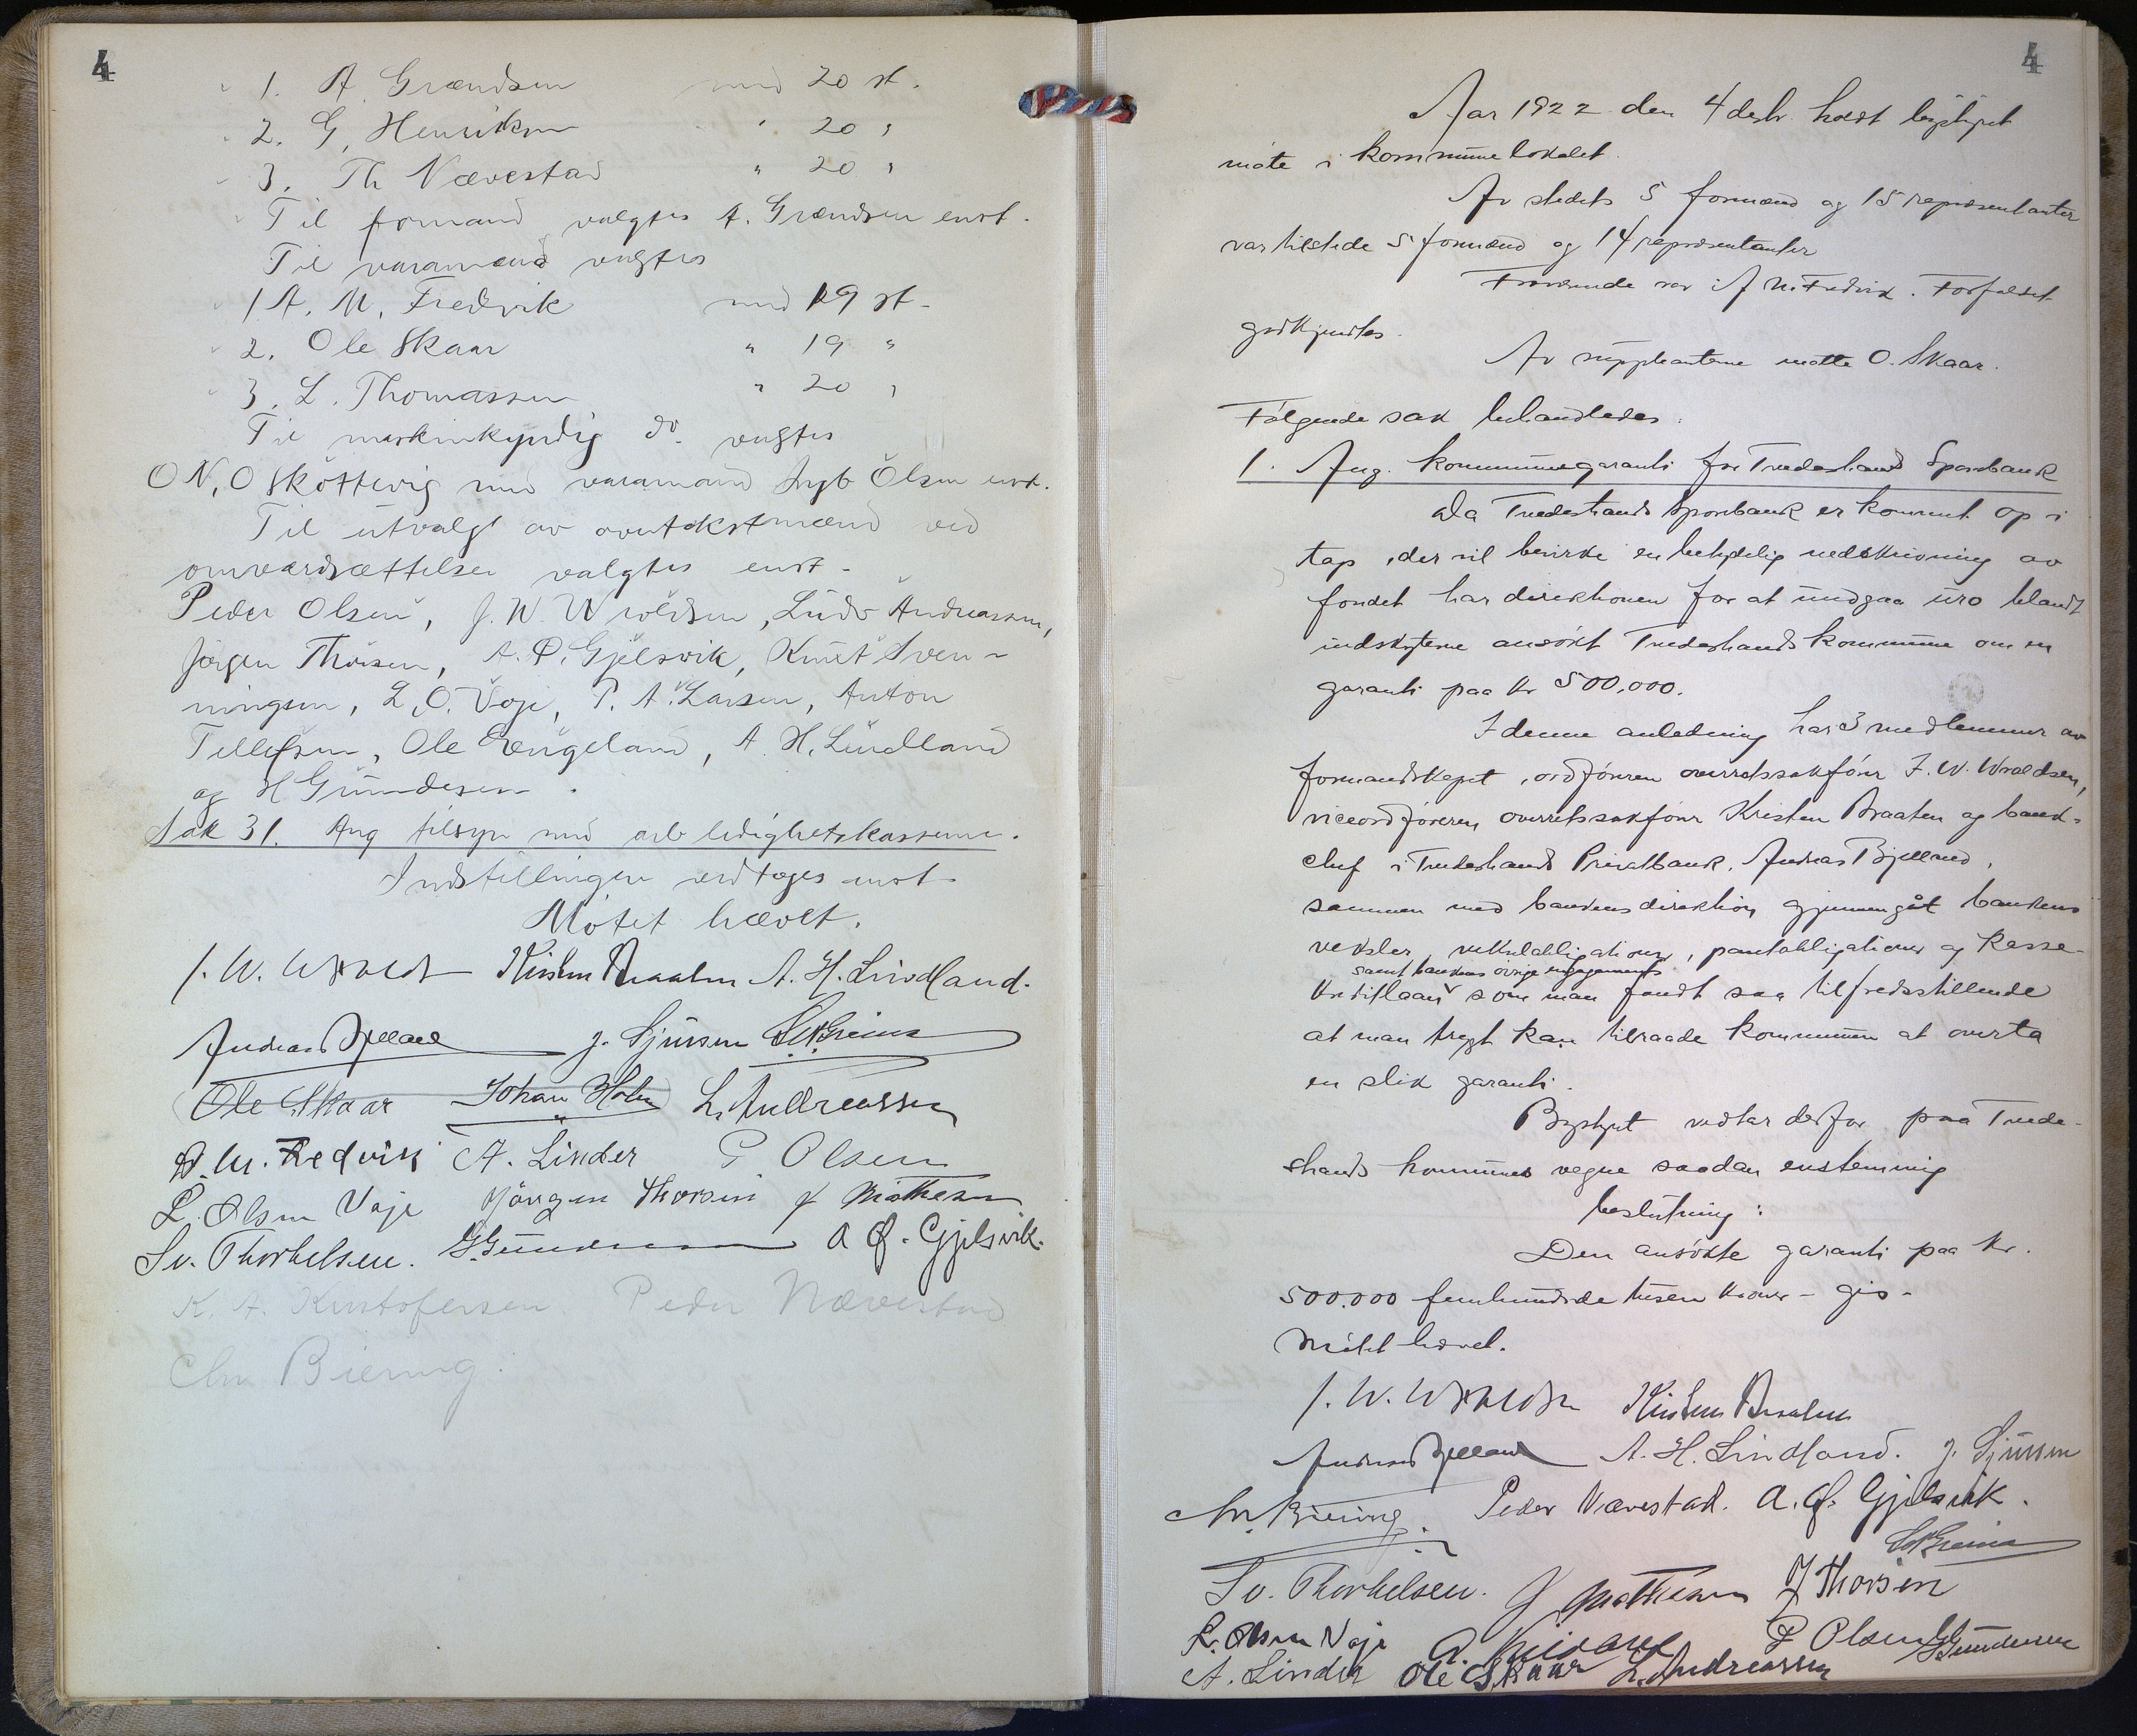 4
1. A. Grændsen med 20 st.
2. G. Henriksen " 20 "
3. Th Nævestad " 20 "
Til formand valgtes A. Grændsen enst.
Til varamænd valgtes
1 A. M. Fredvik med 19 st.
2. Ole Skaar " 19 "
3. L. Thomassen " 20 "
Til maskinkyndig do. valgtes
O. N. O Sköttevig med varamand Olsen enst.
Til utvalgt av avtakstmænd ved
omværdsættelser valgtes enst.
Peder Olsen, J. W. Wroldsen, Ludv Andreassen,
Jörgen Thorsen, A. Ø. Gjelsvik, Knut Sven-
ningsen, L. O. Voje, P. A. Larsen, Anton
Tellefsen, Ole Engeland, A. H. Lindland
og H Gundersen.
Sak 31. Ang tilsyn med arb ledighetskassene.
Indstillingen vedtoges enst.
Mötet hævet.
J. W. Wroldsen Kristen Braaten A. H. Lindland.
Andreas Bjelland J. Sjursen
Ole Skaar Johan Holm L. Andreassen
A. M. Fredvik A. Linder P. Olsen
L. Olsen Voje Jörgen Thorsen J Mathesen
Sv. Thorkelsen. G. Gundersen A Ø. Gjelsvik.
K. A. Kristofersen Peder Nævestad
Chr Biering.
4
Aar 1922 den 4 desbr. holdt bystyret
möte i kommunelokalet.
Av stedets 5 formænd og 15 repræsentanter
var tilstede 5 formænd og 14 repræsentanter
Fraværende var A M. Fredvik. Forfaldet
godkjendtes.
Av suppleantene mötte O. Skaar.
Fölgende sak behandledes:
1. Ang. kommunegaranti for Tvedestrand Sparebank
Da Tvedestrands Sparebank er kommet op i
tap, der vil bevirke en betydelig nedskrivning av
fondet har direktionen for at undgaa uro blandt
indskyterne ansökt Tvedestrands kommune om en
garanti paa kr 500,000.
I denne anledning har 3 medlemmer av
formandskapet, ordföreren overretssakförer J. W. Wroldsen,
viceordföreren overretssakförer Kristen Braaten og bank-
chef i Tvedestrands Privatbank, Andreas Bjelland,
sammen med bankens direktion gjennemgåt bankens
veksler, vekselobligationer, pantobligationer og kasse-
samt bankens övrige engagements
kreditlaan som man fandt saa tilfredsstillende
at man trygt kan tilraade kommunen at overta
en slik garanti.
Bystyret vedtar derfor paa Tvede-
strands kommunes vegne saadan enstemmig
beslutning:
Den ansökte garanti paa kr.
500.000 femhundrede tusen kroner - gis -
Mötet hævet.
J. W. Wroldsen Kristen Braaten
Andreas Bjelland A. H. Lindland. J. Sjursen
Chr. Biering. Peder Nævestad. A. Ø. Gjelsvik.
Sv. Thorkelsen. J Mathesen J Thorsen
L. Olsen Voje P Olsen G Gundersen
A. Linder Ole Skaar L. Andreassen